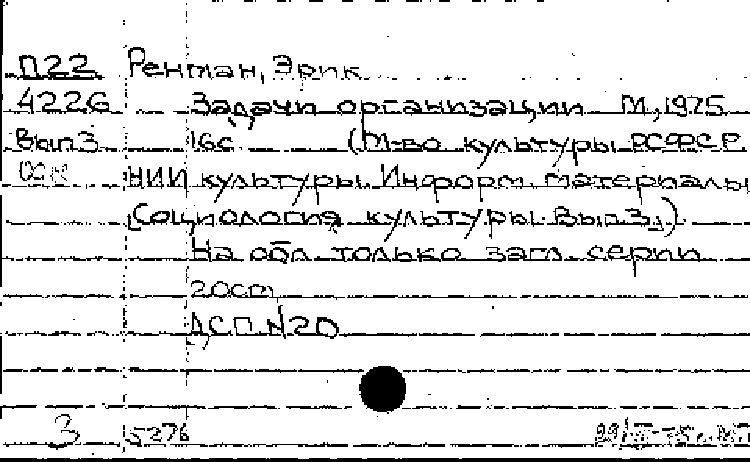 П22 Рентман, Эрик
4226 Задачи организации М, 1975
Вып3 16с (М-во культуры РСФСР
НИИ культуры. Информ. материалы
"Социология культуры. Вып.3.)
На обл. только загл. серии
20cm
ДСП N20
3 5276